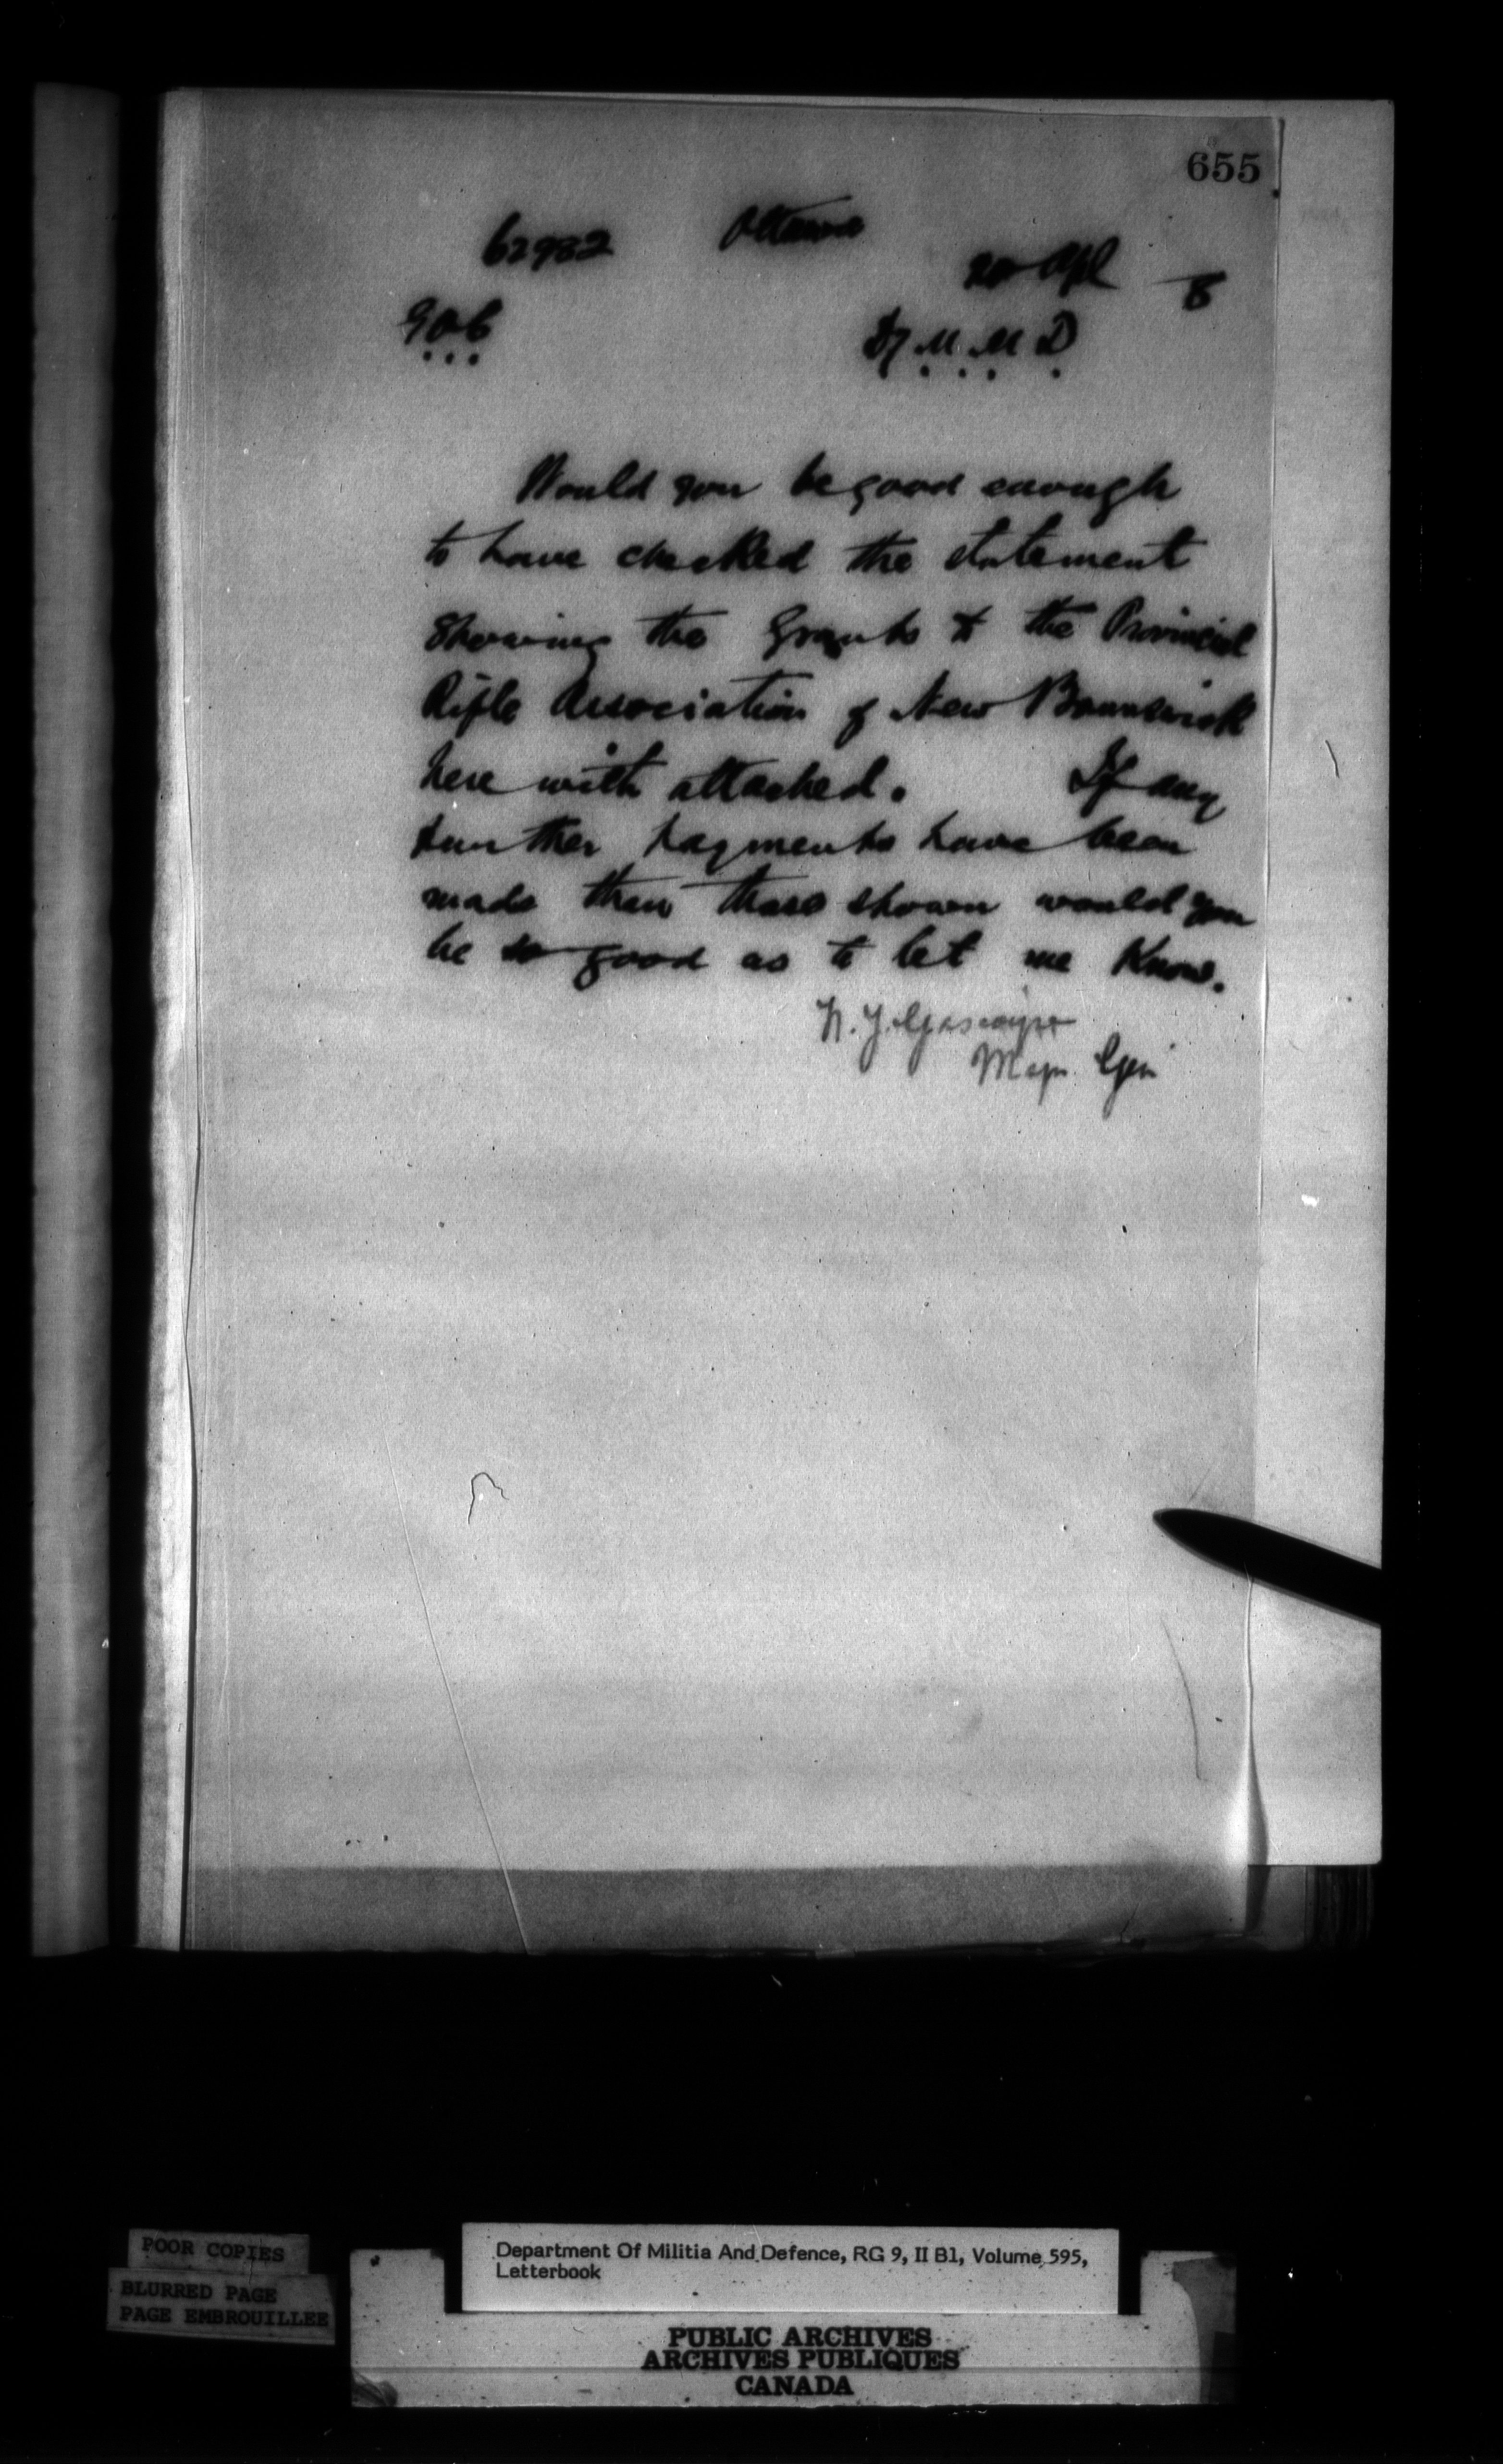 655
62982 Ottawa
20 Apl 8
G O C
D/ M. M. D
Would you be good enough
to have checked the statement
showing the Grants to the Provincial
Rifle Association of New Brunswick
here with attached. If any
further payments have been
made than those shown would you
be so good as to let me know.
Gascoigne
Major Gen
POOR COPIES
BLURRED PAGE
PAGE EMBROUILLEE
Department Of Militia And Defence, RG 9, II B1, Volume 595,
Letterbook
PUBLIC ARCHIVES
ARCHIVES PUBLIQUES
CANADA